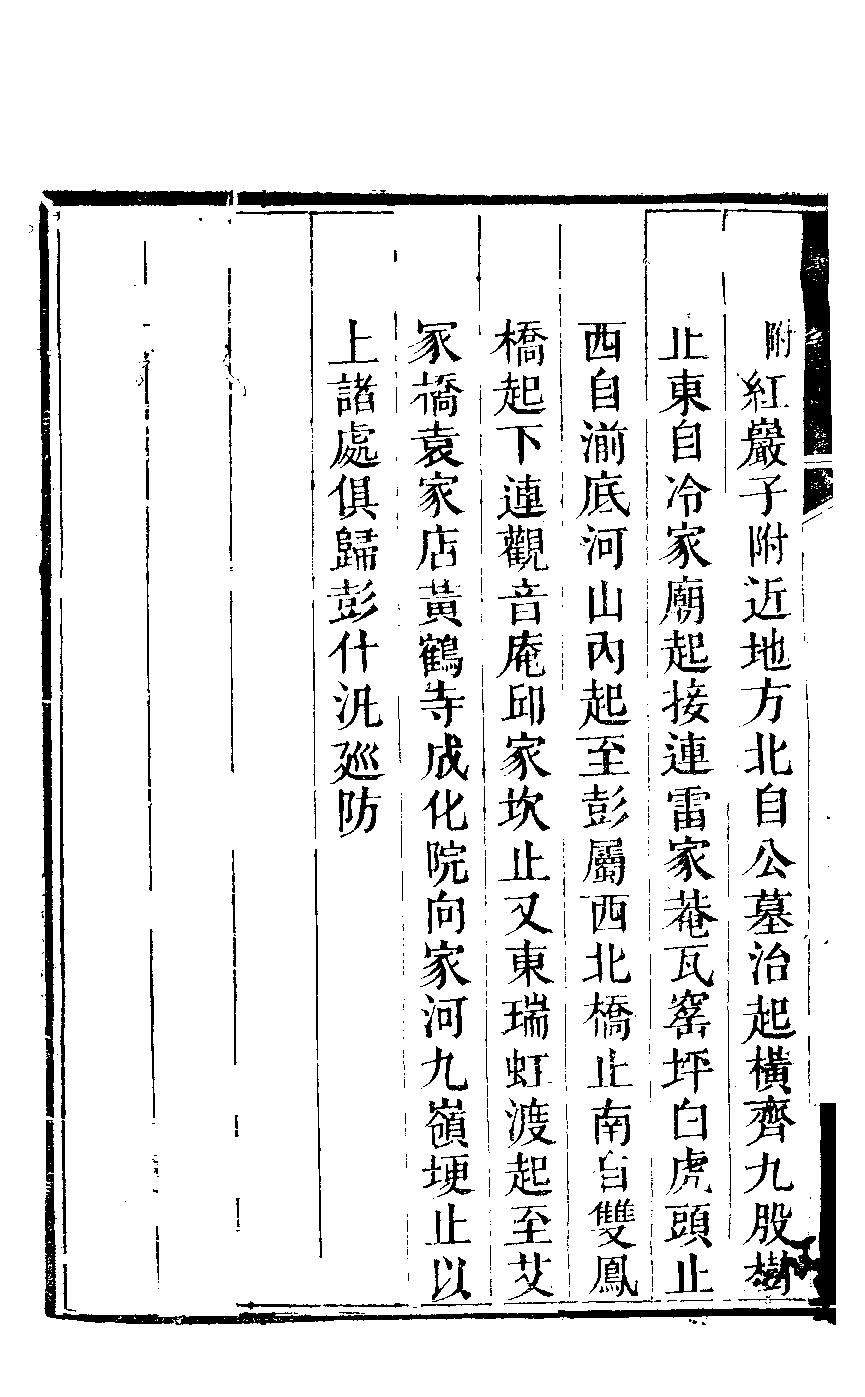 附紅巖子附近地方北自公墓治起橫齊九股樹
止東自冷家廟起接連雷家菴瓦窰坪白虎頭止
西自湔底河山內起至彭屬西北橋止南自雙鳳
橋起下連觀音庵邱家坎止又東瑞虹渡起至艾
家橋袁家店黃鶴寺成化院向家河九嶺埂止以
上諸處俱歸彭什汛廵防